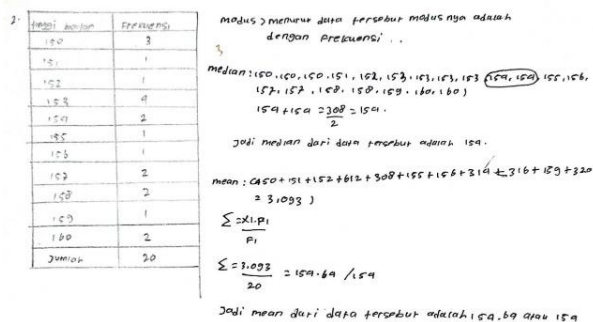 2.
tinggi badan Frekuensi
150 3
151 1
152 1
153 4
154 2
155 1
156 1
157 2
158 2
159 1
160 2
Jumlah 20
modus > menurut data tersebut modus nya adalah
dengan Frekuensi ..
3
median : 150, 150, 150, 151, 152, 153, 153, 153, 153 (154, 154) 155, 156,
157, 157, 158, 158, 159, 160, 160 )
154 + 154 = 308/2 = 154.
Jadi median dari data tersebut adalah 154.
mean : (450 + 151 + 152 + 612 + 308 + 155 + 156 + 314 + 316 + 159 + 320
= 3.093 )
Σ = xi.Fi / Fi
Σ = 3.093 / 20 = 154.64 / 154
Jadi mean dari data tersebut adalah 154,64 atau 154